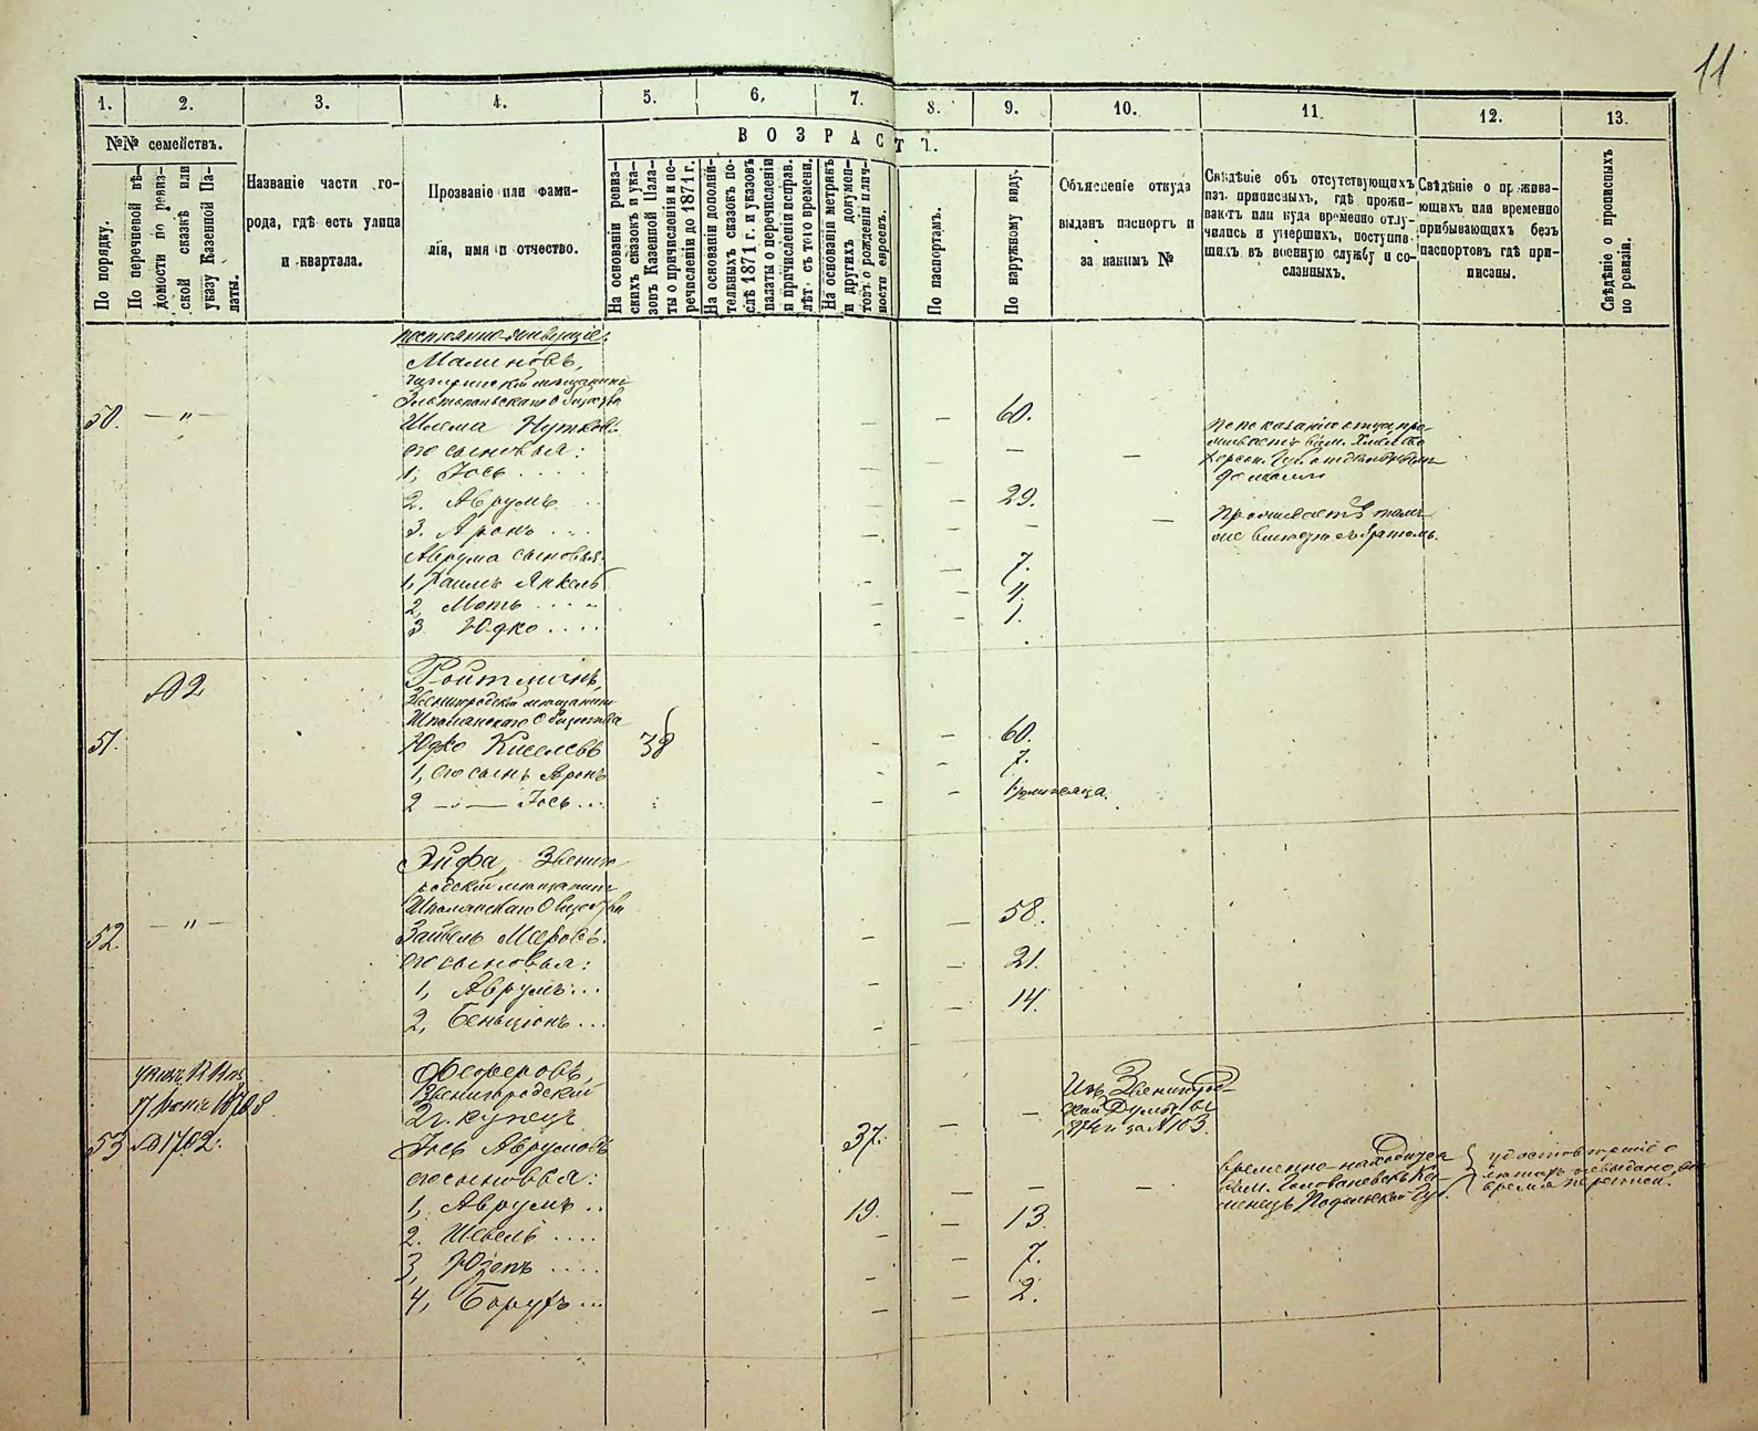 11
1. 2. 3. 4. 5. 6, 7. 8. 9. 10. 11. 12. 13.
№№ семействъ.
В О З Р А С Т Ъ.
По порядку.
По перечневой вѣ-
домости по ревиз-
ской сказкѣ или
указу Казенной Па-
латы.
Названіе части го-
рода, гдѣ есть улица
и квартала.
Прозваніе или фами-
лія, имя и отчество.
На основаніи ревиз-
скихъ сказокъ и ука-
зовъ Казенной Пала-
ты о причисленіи и пе-
речисленіи до 1871 г.
На основаніи дополни-
тельныхъ сказокъ по-
слѣ 1871 г. и указовъ
палаты о перечисленіи
и причисленіи исправ.
лѣт. съ того времени.
На основаніи метрикъ
и другихъ докумен-
товъ о рожденіи и лич-
ности евреевъ.
По паспортамъ.
По наружному виду.
Объясненіе откуда
выданъ паспортъ и
за какимъ №
Свѣдѣніе объ отсутствующихъ
изъ приписныхъ, гдѣ прожи-
ваютъ или куда временно отлу-
чились и умершихъ, поступив-
шихъ въ военную службу и со-
сланныхъ.
Свѣдѣніе о прожива-
ющихъ или временно
прибывающихъ безъ
паспортовъ гдѣ при-
писаны.
Свѣдѣніе о прописныхъ
по ревизіи.
постоянно живущіе:
Малиновъ,
Чигиринскій мѣщанинъ
Златопольскаго Общества
50. — " — Шлема Нутковъ. — 60.
его сыновья:
1, Іось . . . . — — —
по показанію отца про-
живаетъ въ м.
2. Аврумъ . . — 29.
3. Аронъ . . . — — —
Проживаетъ тамъ
же вместе съ братомъ.
Аврума сыновья:
1, Хаимъ Янкель — — 7.
2, Моть . . . . — — 4.
3 Юдко . . . . — — 1.
№2
Ройтманъ,
Звенигородскій мѣщанинъ
Шполянскаго Общества
51. Юдко Киселевъ 38 — — 60.
1, его сынъ Аронъ — — 7.
2 — " — Іось . . . — —
Эйфа, Звениго-
родскій мѣщанинъ
Шполянскаго Общества
52. — " — Зайвель Мееровъ. — — 58.
его сыновья:
1, Аврумъ . . . — — 21.
2, Беньціонъ . . . — — 14.
№1702.
Феферовъ,
Звенигородскій
2 г. купецъ
53 Іось Аврумовъ 37. — —
Изъ Звенигород-
ской Думы
за №103.
его сыновья:
1, Аврумъ . . 19. — — —
временно находится
въ м. Голованевскъ
Подольской Губ.
2. Шевель . . . . — — 13.
3, Юзепъ . . . . — — 7.
4, Борухъ . . . — — 2.